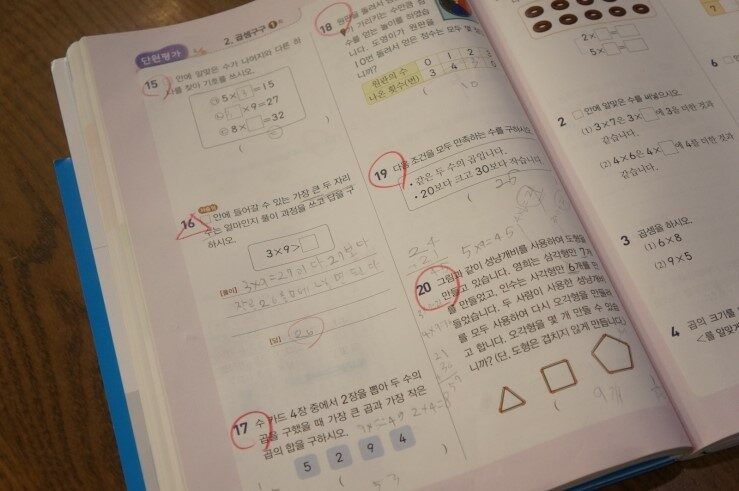 단원평가
2. 곱셈구구
15
안에 알맞은 수가 나머지와 다른 하
나를 찾아 기호를 쓰시오.
㉠ 5×3=15
×9=27
㉢ 8× =32
( )
16
안에 들어갈 수 있는 가장 큰 두 자리
수는 얼마인지 풀이 과정을 쓰고 답을 구
하시오.
3×9>
[풀이] 3×9=27이다 27보다
[답] 26
17
수 카드 4장 중에서 2장을 뽑아 두 수의
곱을 구했을 때 가장 큰 곱과 가장 작은
곱의 합을 구하시오.
5 2 9 4
53
18
원판을 돌려서
가 가리키는 수만큼 점
수를 얻는 놀이를 하였습
니다. 도영이가 원판을
10번 돌려서 얻은 점수는 모두 몇 점
니까?
원판의 수 0 1 2 3
나온 횟수(번) 3 4 5
19
다음 조건을 모두 만족하는 수를 구하시오.
• 같은 두 수의 곱입니다.
• 20보다 크고 30보다 작습니다.
( 25
5×9=45
20
그림과 같이 성냥개비를 사용하여 도형을
만들고 있습니다. 영희는 삼각형만 7개
를 만들었고, 민수는 사각형만 6개를 만
들었습니다. 두 사람이 사용한 성냥개비
를 모두 사용하여 다시 오각형을 만들려
고 합니다. 오각형을 몇 개 만들 수 있습
니까? (단, 도형은 겹치지 않게 만듭니다.)
( 9개
2×
5×
6
2
안에 알맞은 수를 써넣으시오.
(1) 3×7은 3× 에 3을 더한 것과
같습니다.
(2) 4×6은 4× 에 4를 더한 것과
같습니다.
3
곱셈을 하시오.
(1) 6×8
(2) 9×5
4
곱의 크기를